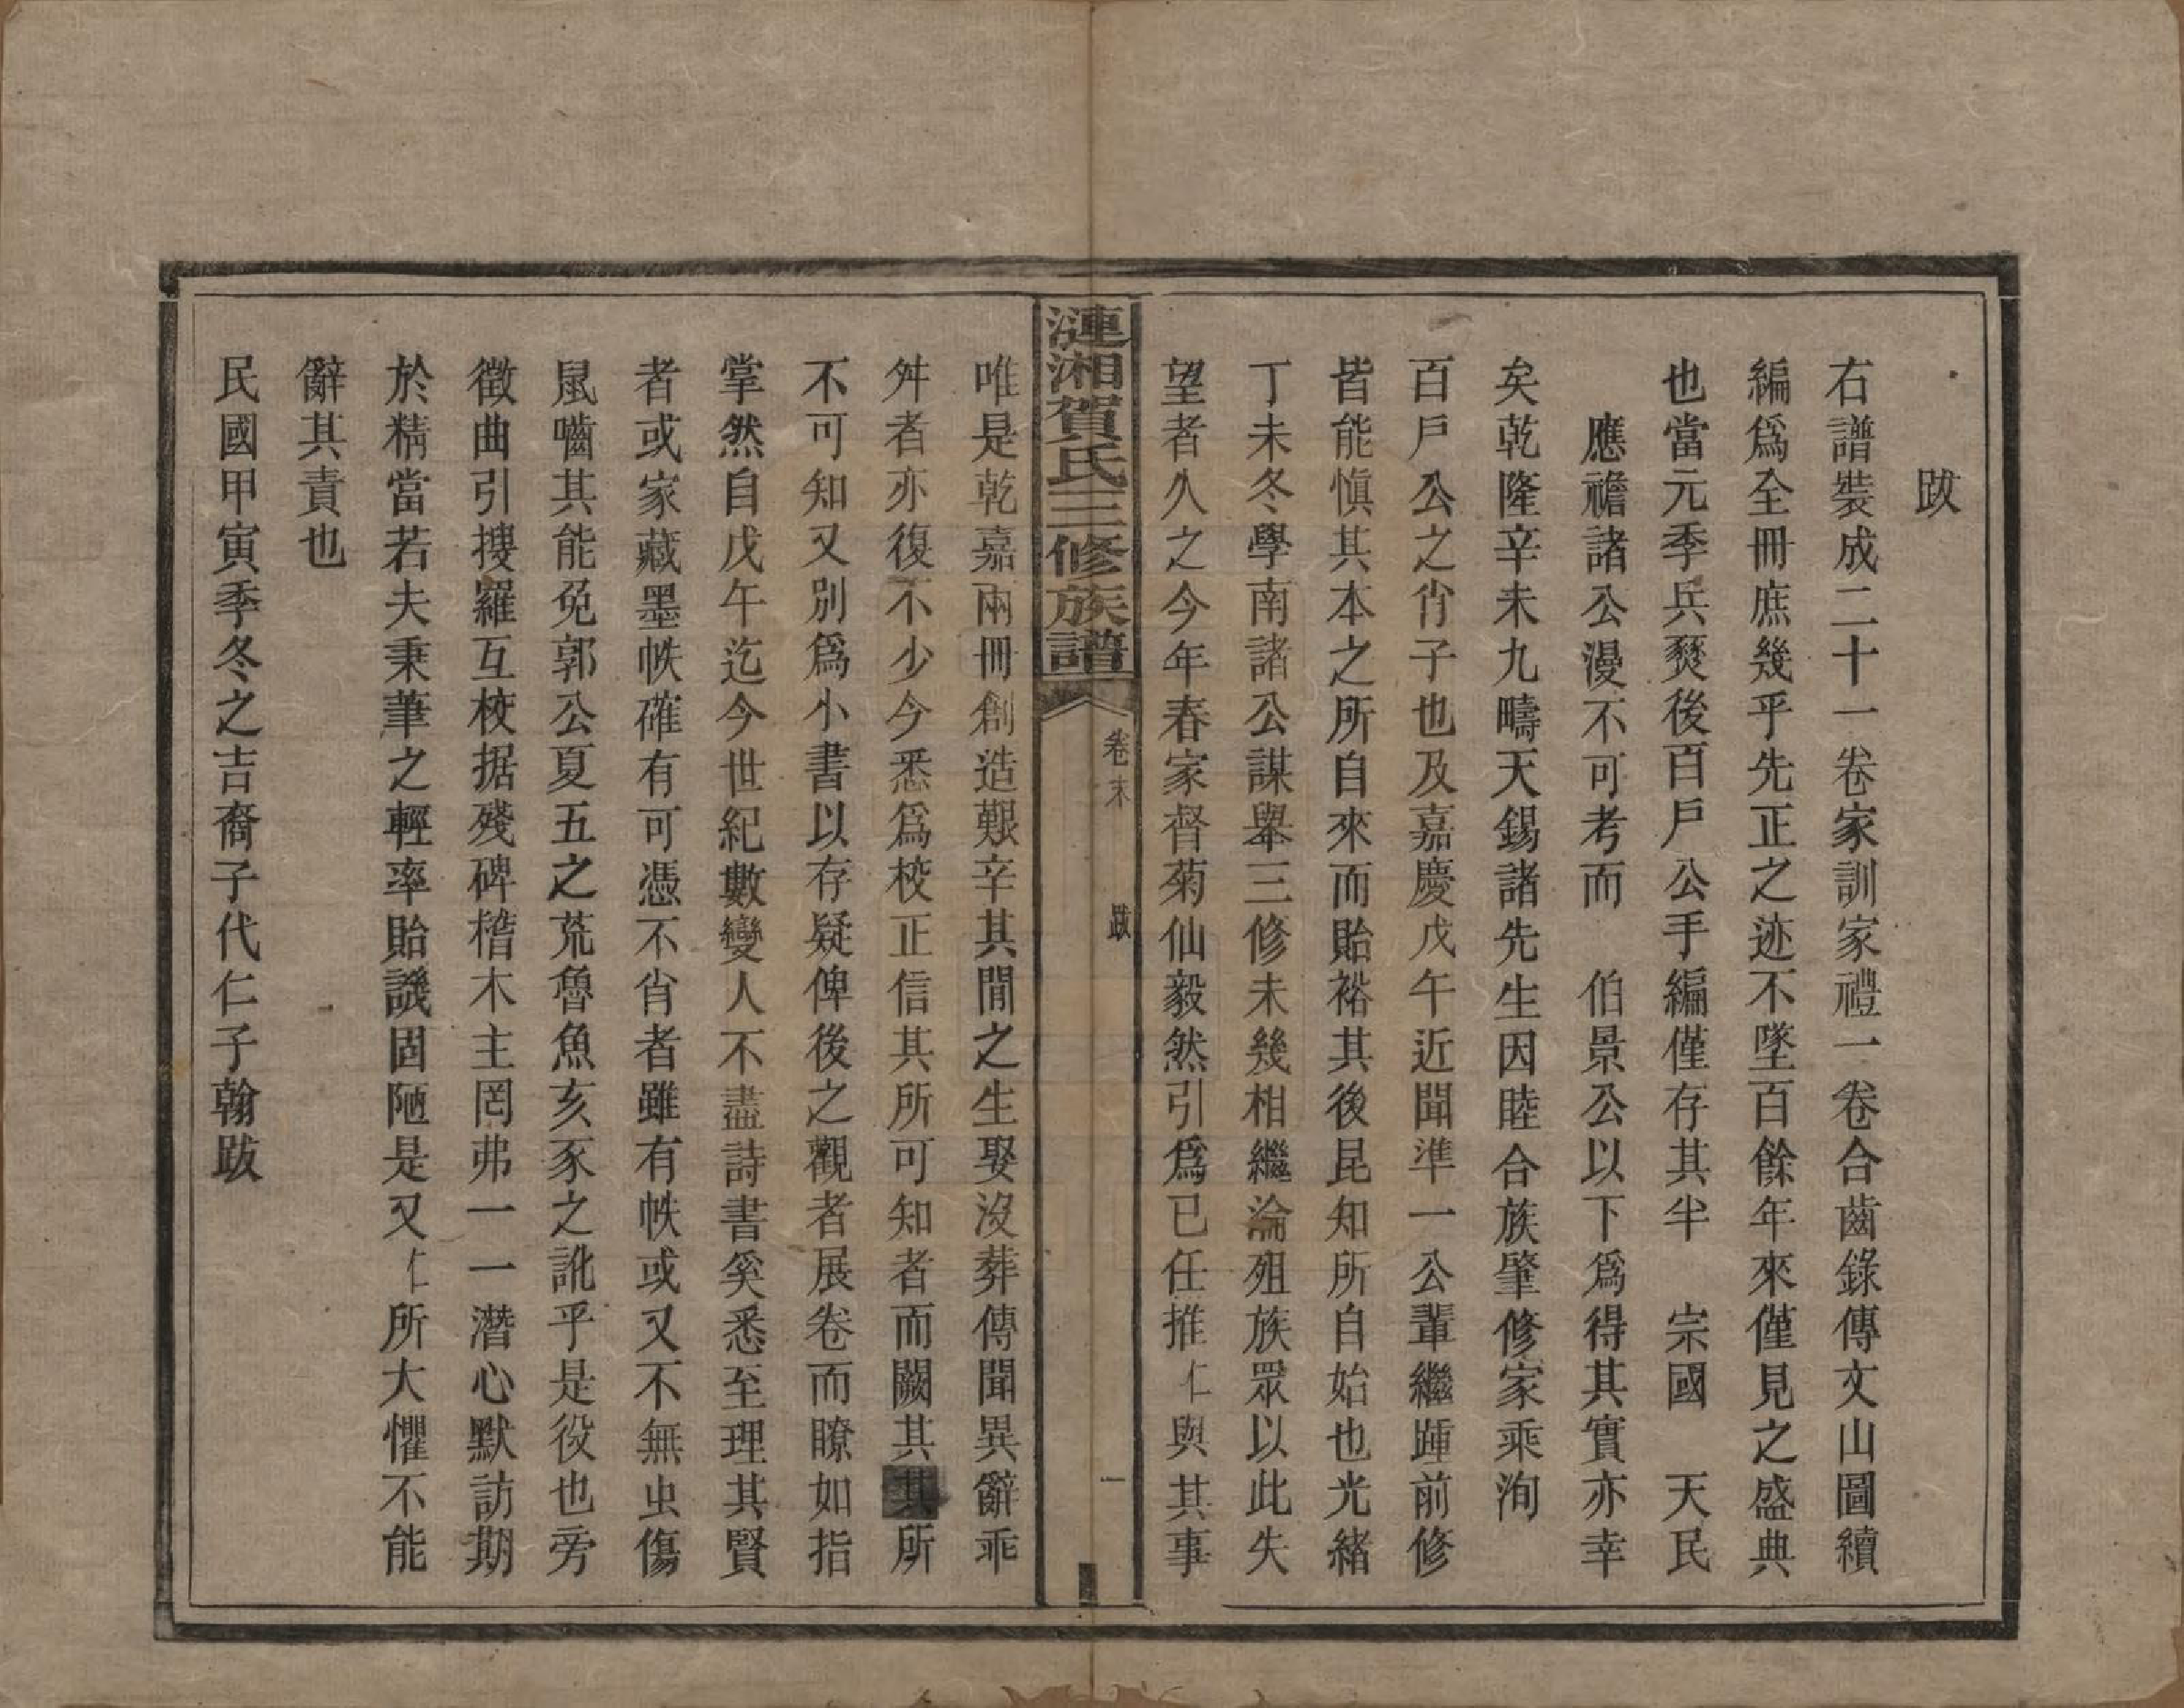 跋
右譜裝成二十一卷家訓家禮一卷合齒錄傳文山圖續
編爲全冊庶幾乎先正之迹不墜百餘年來僅見之盛典
也當元季兵燹後百戶公手編僅存其半　宗國　天民
應襜諸公漫不可考而　伯景公以下爲得其實亦幸
矣乾隆辛未九疇天錫諸先生因睦合族肇修家乘洵
百戶公之肖子也及嘉慶戊午近聞準一公輩繼踵前修
皆能愼其本之所自來而貽裕其後昆知所自始也光緒
丁未冬學南諸公謀舉三修未幾相繼淪殂族眾以此失
望者久之今年春家督菊仙毅然引爲已任推仁與其事
漣湘賀氏三修族譜　卷末　跋　一
唯是乾嘉兩冊創造艱辛其閒之生娶沒葬傳聞異辭乖
舛者亦復不少今悉爲校正信其所可知者而闕其其所
不可知又別爲小書以存疑俾後之觀者展卷而瞭如指
掌然自戊午迄今世紀數變人不盡詩書奚悉至理其賢
者或家藏墨帙確有可憑不肖者雖有帙或又不無虫傷
鼠嚙其能免郭公夏五之荒魯魚亥豕之訛乎是役也旁
徵曲引搜羅互校据殘碑稽木主罔弗一一潛心默訪期
於精當若夫秉筆之輕率貽譏固陋是又仁所大懼不能
辭其責也
民國甲寅季冬之吉裔子代仁子翰跋